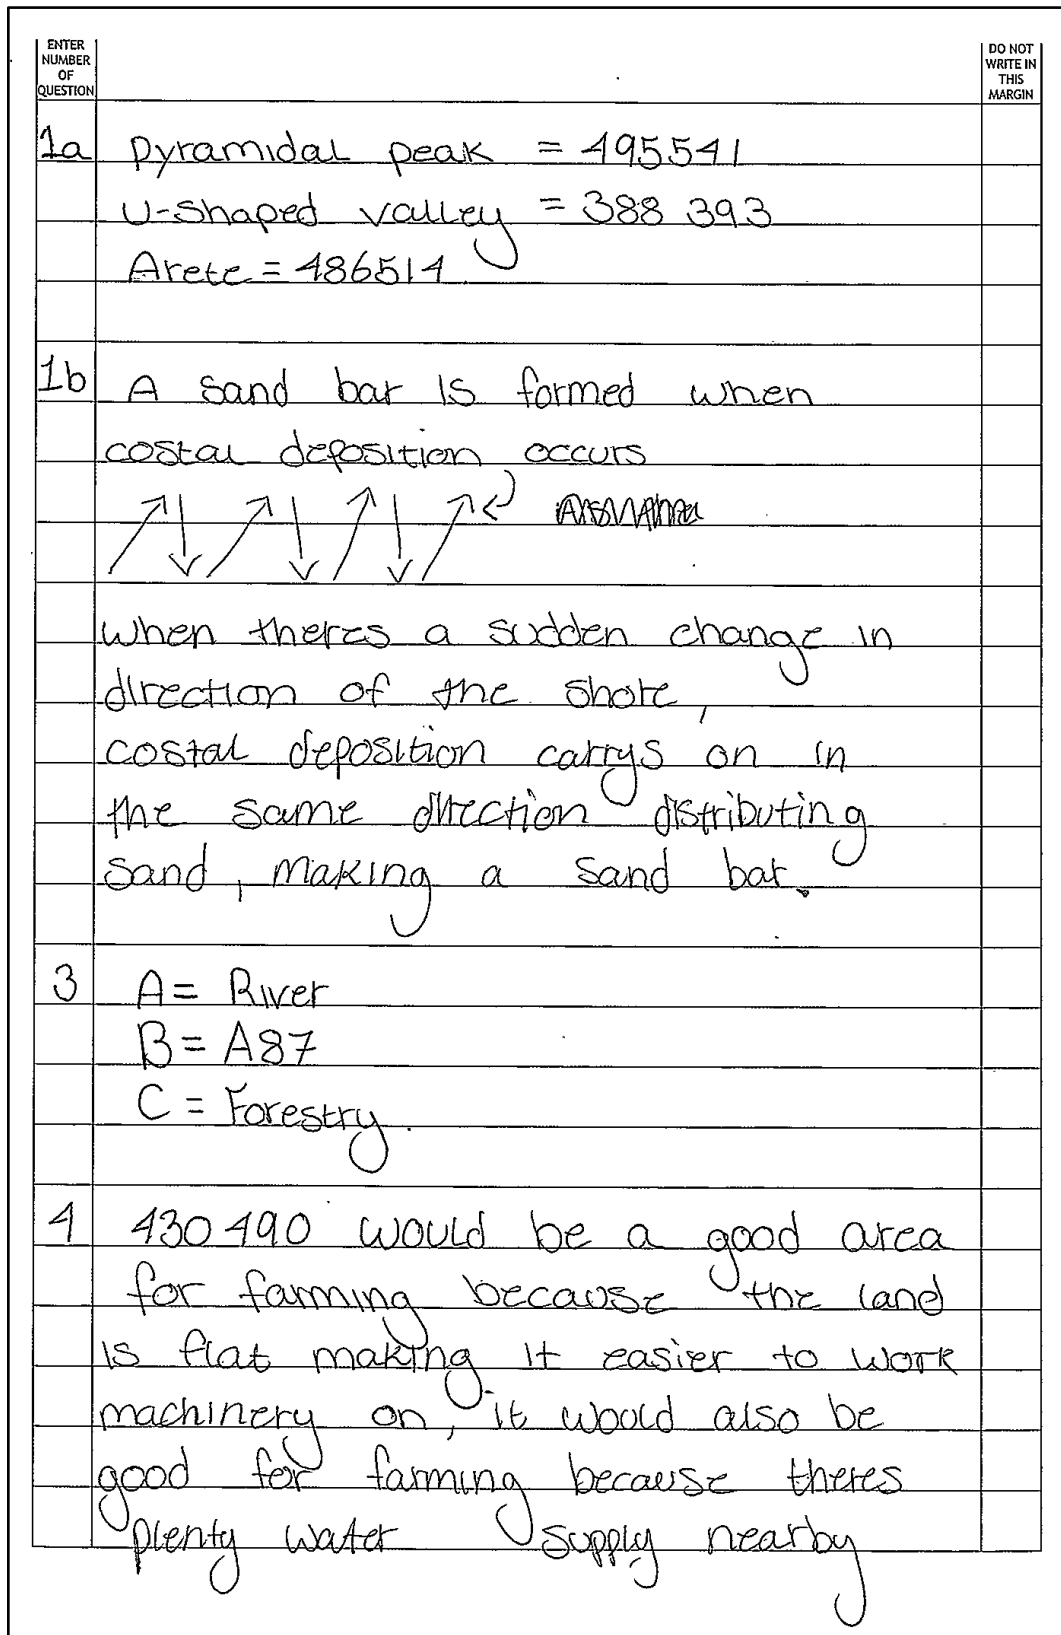 ENTER
NUMBER
OF
QUESTION
DO NOT
WRITE IN
THIS
MARGIN
1a Pyramidal peak = 495541
U-shaped valley = 388 393
Arete = 486514
1b A sand bar is formed when
costal deposition occurs
when theres a sudden change in
direction of the shore,
costal deposition carrys on in
the same direction distributing
sand, making a sand bar.
3 A = River
B = A87
C = Forestry.
4 430490 would be a good area
for farming because the land
is flat making it easier to work
machinery on, it would also be
good for farming because theres
plenty water supply nearby